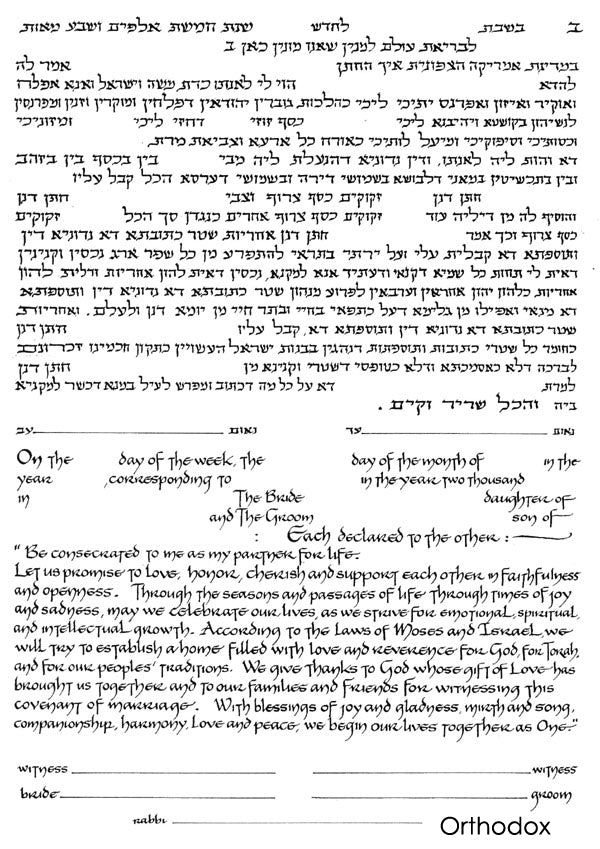 ב בשבת לחדש שנת חמשת אלפים ושבע מאות
לבריאת עולם למנין שאנו מונין כאן ב
במדינת אמריקה הצפונית איך החתן אמר לה
להדא הוי לי לאנתו כדת משה וישראל ואנא אפלח
ואוקיר ואיזון ואפרנס יתיכי ליכי כהלכות גוברין יהודאין דפלחין ומוקרין וזנין ומפרנסין
לנשיהון בקושטא ויהיבנא ליכי כסף זוזי דחזי ליכי ומזוניכי
וכסותיכי וסיפוקיכי ומיעל לותיכי כאורח כל ארעא וצביאת מרת
דא והות ליה לאנתו ודין נדוניא דהנעלת ליה מבי בין בכסף בין בזהב
ובין בתכשיטין במאני דלבושא בשמושי דירה ובשמושי דערסא הכל קבל עליו
חתן דנן זקוקים כסף צרוף וצבי חתן דנן
והוסיף לה מן דיליה עוד זקוקים כסף צרוף אחרים כנגדן סך הכל זקוקים
כסף צרוף וכך אמר חתן דנן אחריות שטר כתובתא דא נדוניא דין
ותוספתא דא קבלית עלי ועל ירתי בתראי להתפרע מן כל שפר ארג נכסין וקנינין
דאית לי תחות כל שמיא דקנאי ודעתיד אנא למקנא נכסין דאית להון אחריות ודלית להון
אחריות כלהון יהון אחראין וערבאין לפרוע מנהון שטר כתובתא דא נדוניא דין ותוספתא
דא מנאי ואפילו מן גלימא דעל כתפאי בחיי ובתר חיי מן יומא דנן ולעלם ואחריות
שטר כתובתא דא נדוניא דין ותוספתא דא קבל עליו חתן דנן
כחומר כל שטרי כתובות ותוספתות דנהגין בבנות ישראל העשויין כתקון חכמינו זכרונם
לברכה דלא כאסמכתא ודלא כטופסי דשטרי וקנינא מן חתן דנן
למרת דא על כל מה דכתוב ומפרש לעיל במנא דכשר למקניא
ביה והכל שריר וקים.
נאום עד נאום עב
On the day of the week, the day of the month of in the
year , corresponding to in the year two thousand
in The Bride daughter of
and The Groom son of
: Each declared to the other :
"Be consecrated to me as my partner for life.
Let us promise to love, honor, cherish and support each other in faithfulness
and openness. Through the seasons and passages of life through times of joy
and sadness, may we celebrate our lives, as we strive for emotional, spiritual,
and intellectual growth. According to the Laws of Moses and Israel, we
will try to establish a home filled with love and reverence for God, for Torah,
and for our peoples' traditions. We give thanks to God whose gift of Love has
brought us together and to our families and friends for witnessing this
covenant of marriage. With blessings of joy and gladness, mirth and song,
companionship, harmony, Love and peace, we begin our lives together as One."
witness witness
bride groom
rabbi
Orthodox